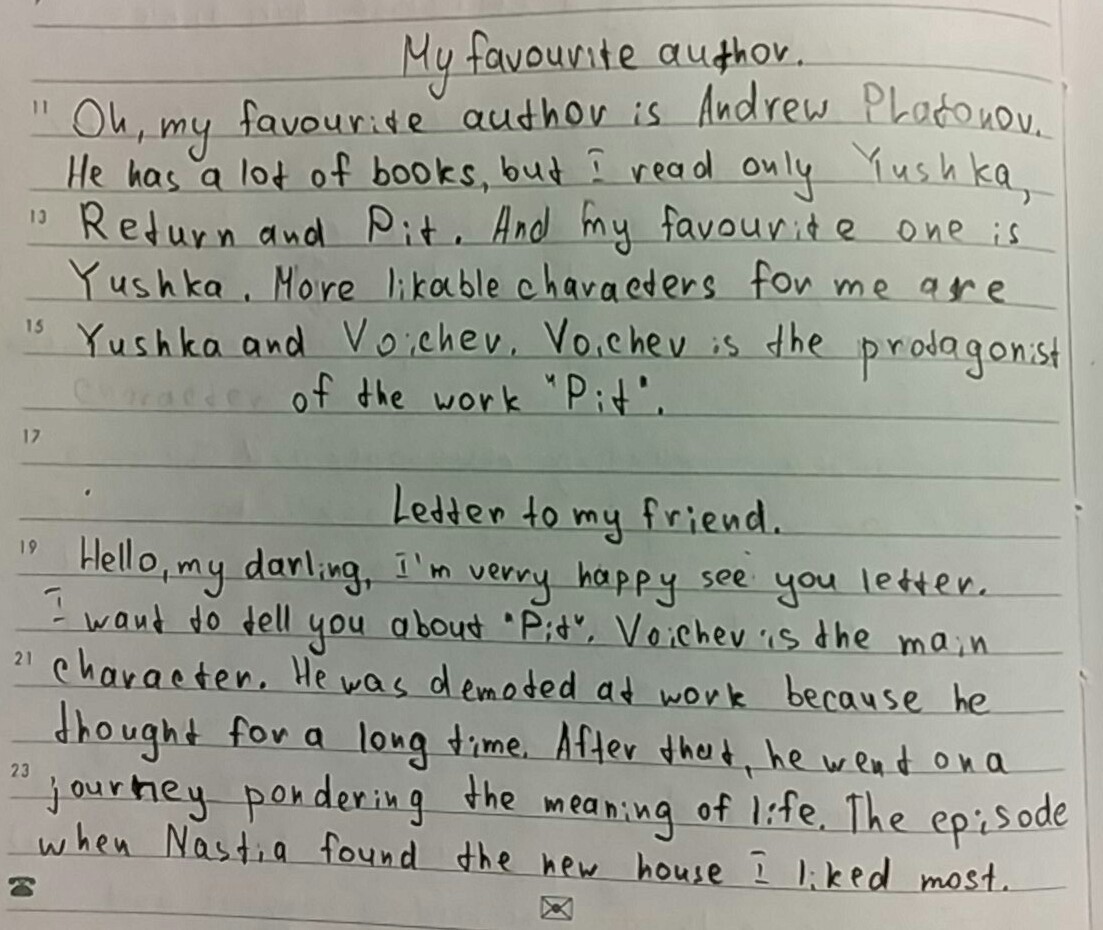 My favourite author.
11 Oh, my favourite author is Andrew PLatonov.
He has a lot of books, but I read only Yushka,
13 Return and Pit. And my favourite one is
Yushka. More likable characters for me are
15 Yushka and Voichev. Voichev is the protagonist
Character of the work "Pit".
17
Letter to my friend.
19 Hello, my darling, I'm verry happy see you letter.
I want to tell you about "Pit". Voichev is the main
21 character. He was demoted at work because he
thought for a long time. After that, he went on a
23 journey pondering the meaning of life. The episode
when Nastia found the new house I liked most.